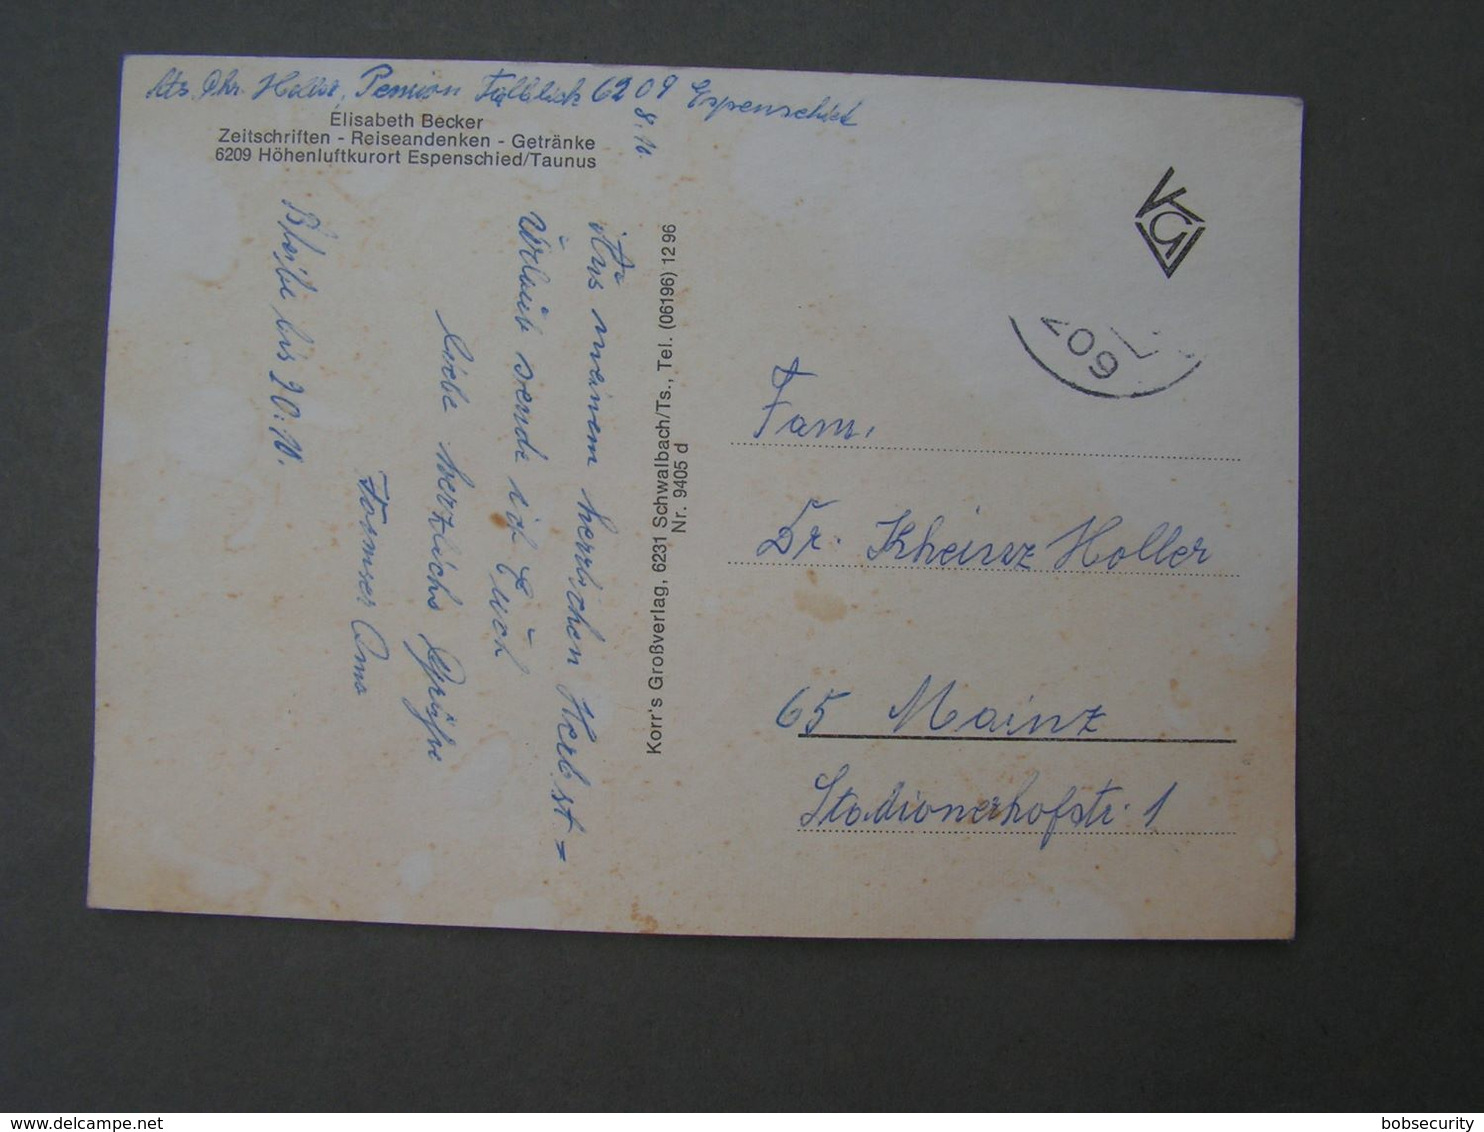 Chr. Holler, Pension Talblick 6209 Espenschied
8.10.
Elisabeth Becker
Zeitschriften - Reiseandenken - Getränke
6209 Höhenluftkurort Espenschied/Taunus
Aus meinem herrlichen Herbst-
Urlaub sende ich Euch
liebe herzliche Grüße
Oma
Bleibe bis 20.10.
Korr's Großverlag, 6231 Schwalbach/Ts., Tel. (06196) 12 96
Nr. 9405 d
KGV
209
Fam.
Dr. Kheinz Holler
65 Mainz
Stadionerhofstr. 1
bobsecurity